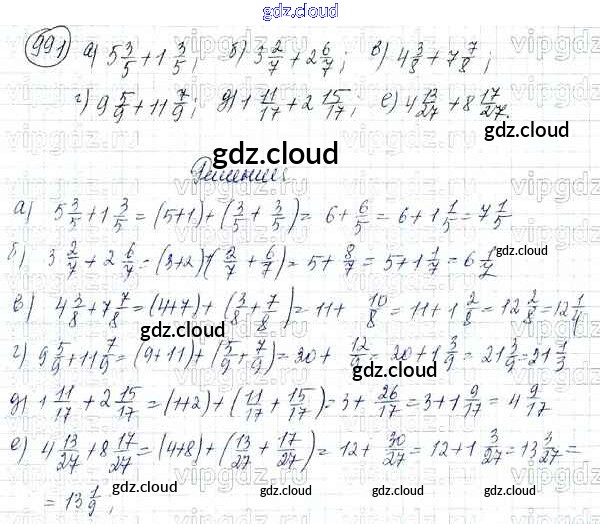 gdz.cloud
991) а) 5 3/5 + 1 3/5; б) 3 2/7 + 2 6/7; в) 4 3/8 + 7 7/8;
г) 9 5/9 + 11 7/9; д) 1 11/17 + 2 15/17; е) 4 13/27 + 8 17/27.
gdz.cloud
Решение
а) 5 3/5 + 1 3/5 = (5+1) + (3/5 + 3/5) = 6 + 6/5 = 6 + 1 1/5 = 7 1/5
б) 3 2/7 + 2 6/7 = (3+2)+(2/7 + 6/7) = 5 + 8/7 = 5 + 1 1/7 = 6 1/7
gdz.cloud
в) 4 3/8 + 7 7/8 = (4+7) + (3/8 + 7/8) = 11 + 10/8 = 11 + 1 2/8 = 12 2/8 = 12 1/4
gdz.cloud
г) 9 5/9 + 11 7/9 = (9+11) + (5/9 + 7/9) = 20 + 12/9 = 20 + 1 3/9 = 21 3/9 = 21 1/3
д) 1 11/17 + 2 15/17 = (1+2) + (11/17 + 15/17) = 3 + 26/17 = 3 + 1 9/17 = 4 9/17
е) 4 13/27 + 8 17/27 = (4+8) + (13/27 + 17/27) = 12 + 30/27 = 12 + 1 3/27 = 13 3/27 =
= 13 1/9;
gdz.cloud gdz.cloud gdz.cloud